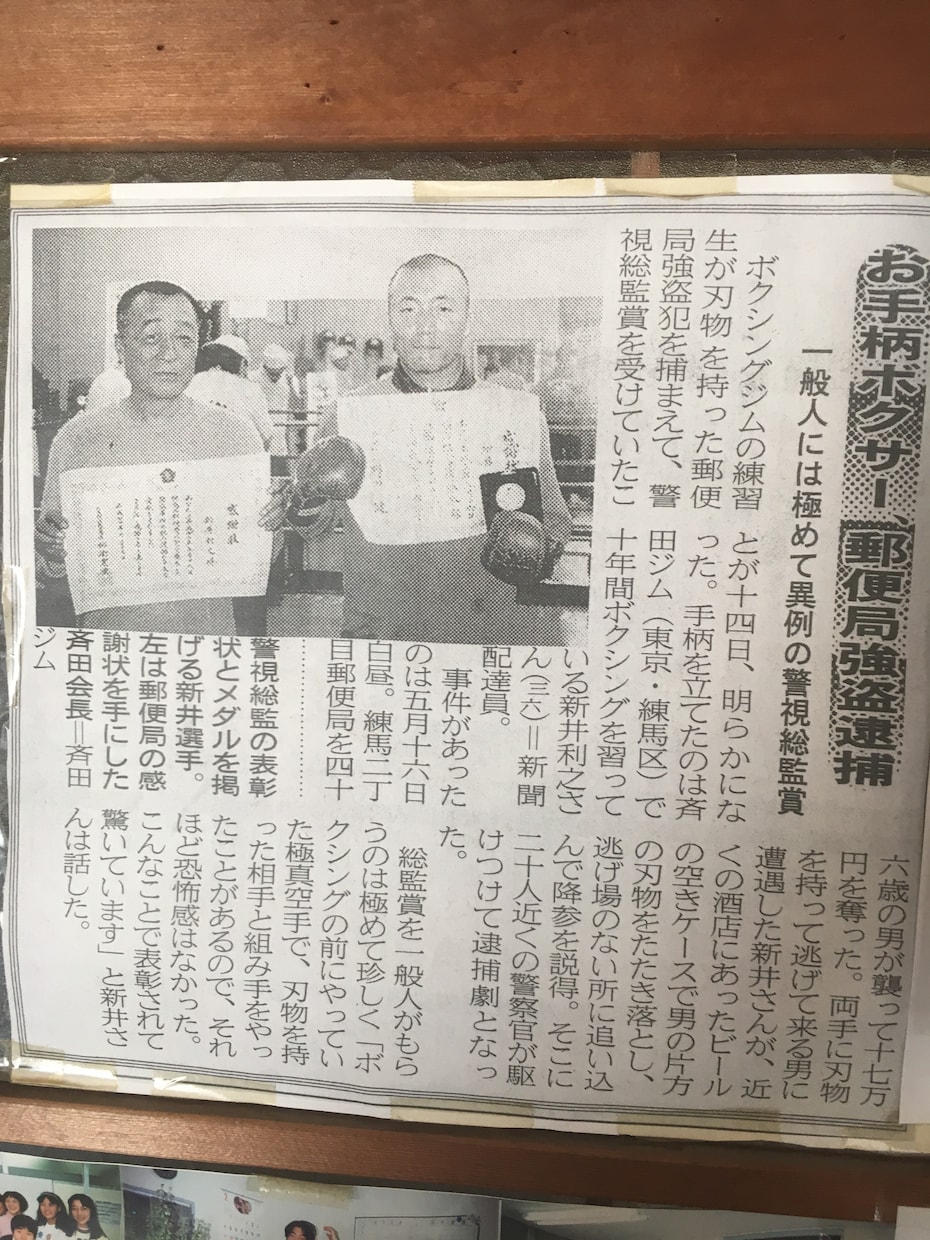 お手柄ボクサー、郵便局強盗逮捕
一般人には極めて異例の警視総監賞
ボクシングジムの練習
生が刃物を持った郵便
局強盗犯を捕まえて、警
視総監賞を受けていたこ
とが十四日、明らかにな
った。手柄を立てたのは斉
田ジム（東京・練馬区）で
十年間ボクシングを習って
いる新井利之さ
ん（三六）＝新聞
配達員。
事件があった
のは五月十六日
白昼。練馬二丁
目郵便局を四十
六歳の男が襲って十七万
円を奪った。両手に刃物
を持って逃げて来る男に
遭遇した新井さんが、近
くの酒店にあったビール
の空きケースで男の片方
の刃物をたたき落とし、
逃げ場のない所に追い込
んで降参を説得。そこに
二十人近くの警察官が駆
けつけて逮捕劇となっ
た。
総監賞を一般人がもら
うのは極めて珍しく「ボ
クシングの前にやってい
た極真空手で、刃物を持
った相手と組み手をやっ
たことがあるので、それ
ほど恐怖感はなかった。
こんなことで表彰されて
驚いています」と新井さ
んは話した。
警視総監の表彰
状とメダルを掲
げる新井選手。
左は郵便局の感
謝状を手にした
斉田会長＝斉田
ジム
感謝状